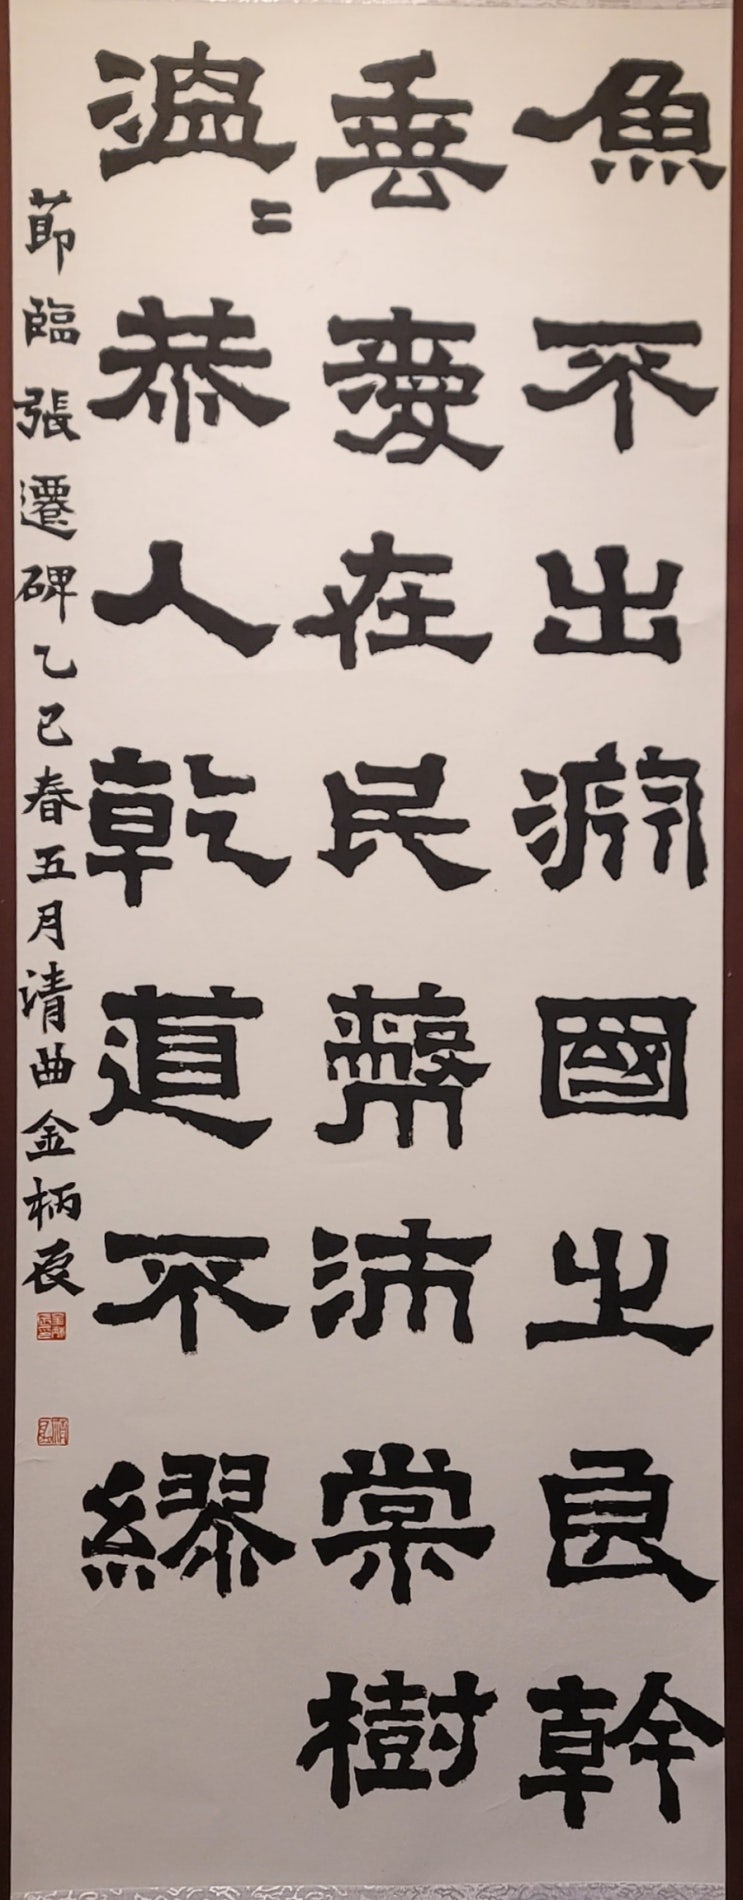 魚不出淵國之良幹
垂愛在民蔽沛棠樹
温〻恭人乾道不繆
節臨張遷碑乙巳春五月清曲金柄辰